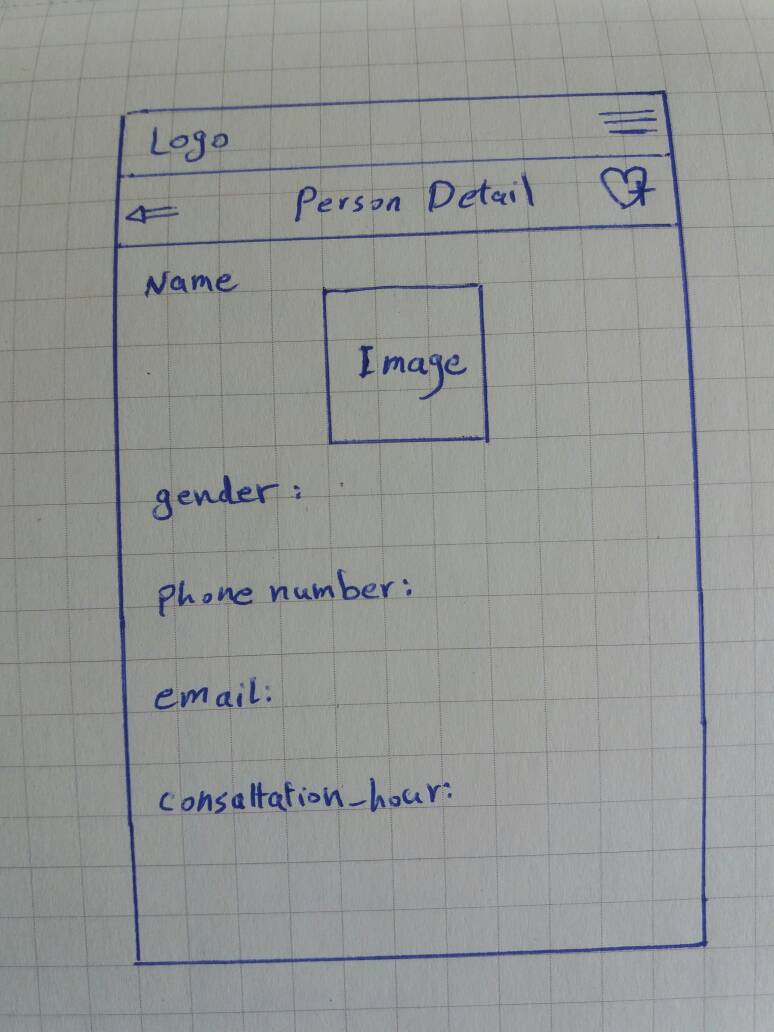 Logo
Person Detail
Name
Image
gender:
phone number:
email:
consaltation_hour: